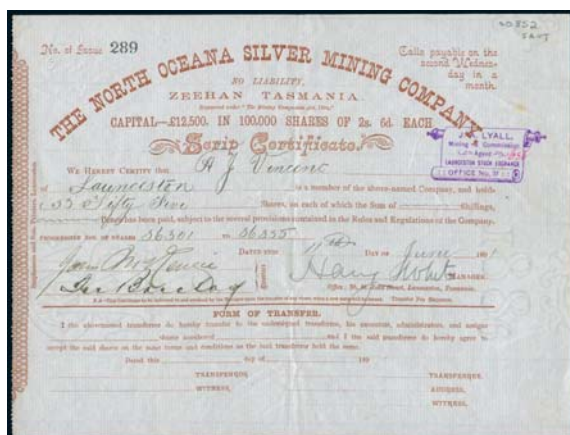 No. of Issue 289
Calls payable on the
second Wednes-
day in a
month.
THE NORTH OCEANA SILVER MINING COMPANY
NO LIABILITY,
ZEEHAN TASMANIA.
CAPITAL—£12,500. IN 100,000 SHARES OF 2s. 6d. EACH
Scrip Certificate.
J. LYALL.
Mining & Commission
Agent
LAUNCESTON STOCK EXCHANGE
OFFICE No.
WE HEREBY CERTIFY that A J Vincent
of Launceston is a member of the above-named Company, and holds
55 Fifty Five Shares, on each of which the sum of Shillings,
Pence has been paid, subject to the several provisions contained in the Rules and Regulations of the Company.
PROGRESSIVE NOS. OF SHARES 36,301 to 36,355
DATED THIS 11th DAY OF June 1891
MANAGER.
FORM OF TRANSFER.
I the above-named transferror do hereby transfer to the undersigned transferree, his executors, administrators, and assigns
shares numbered and I the said transferree do hereby agree to
accept the said shares on the same terms and conditions as the said transferror held the same.
Dated this day of 189
TRANSFERROR. TRANSFERREE.
WITNESS. ADDRESS.
WITNESS.